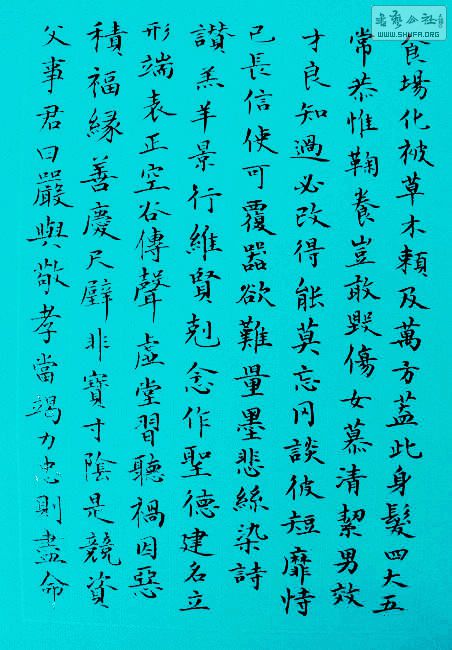 食場化被草木賴及萬方蓋此身髮四大五
常恭惟鞠養豈敢毀傷女慕清絜男效
才良知過必改得能莫忘罔談彼短靡恃
己長信使可覆器欲難量墨悲絲染詩
讚羔羊景行維賢剋念作聖德建名立
形端表正空谷傳聲虛堂習聽禍因惡
積福緣善慶尺璧非寶寸陰是競資
父事君曰嚴與敬孝當竭力忠則盡命
書藝公社
WWW.SHUFA.ORG